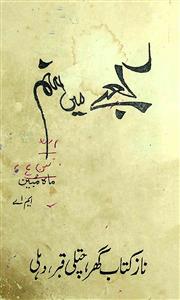 کعبے میں صنم
ماہ مبین
ایم اے
ناز کتاب گھر، چتلی قبر، دہلی